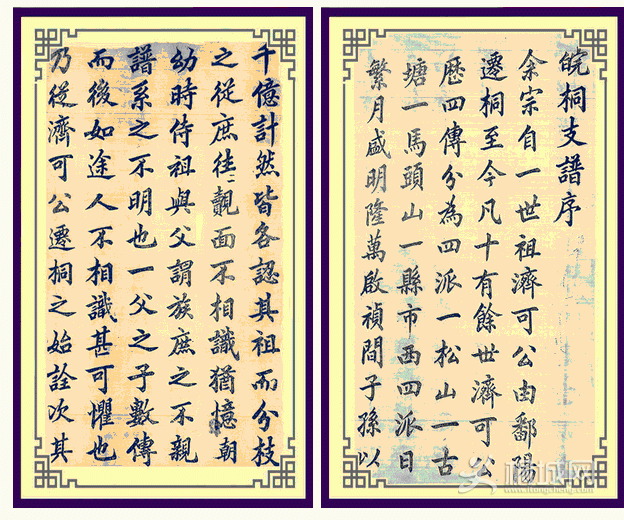 皖桐支譜序
余宗自一世祖濟可公由鄱陽
遷桐至今凡十有餘世濟可公
歷四傳分為四派一松山一古
塘一馬頭山一縣市西四派日
繁月盛明隆萬啟禎間子孫以
千億計然皆各認其祖而分枝
之從庶徃〻覿面不相識猶憶朝
幼時侍祖與父謂族庶之不親
譜系之不明也一父之子數傳
而後如途人不相識甚可懼也
乃從濟可公遷桐之始詮次其
桐城网